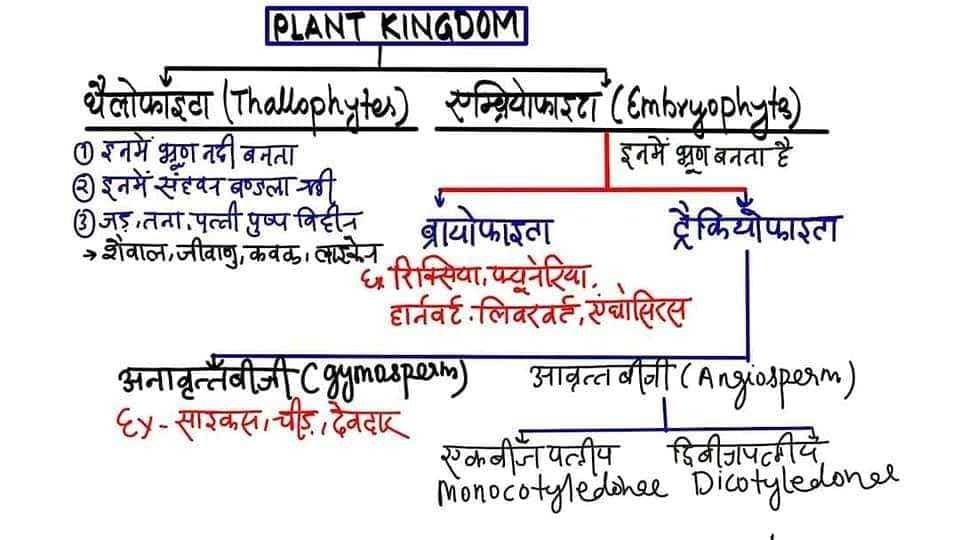 PLANT KINGDOM
थैलोफाइटा (Thallophytes)
एम्ब्रियोफाइटा (Embryophyte)
① इनमें भ्रूण नही बनता
② इनमें संहवन बण्डल नही
③ जड़, तना, पत्ती पुष्प विहीन
→ शैवाल, जीवाणु, कवक, लाइकेन
इनमें भ्रूण बनता है
ब्रायोफाइटा
ट्रैकियोफाइटा
Ex रिक्सिया, फ्यूनेरिया,
हार्नवर्ट. लिवरवर्ट, एंथोसिरस
अनावृत्तबीजी (gymasperm)
आवृत्तबीजी (Angiosperm)
Ex - साइकस, चीड़, देवदार
एकबीजपत्रीय
Monocotyledonee
द्विबीजपत्रीय
Dicotyledonee